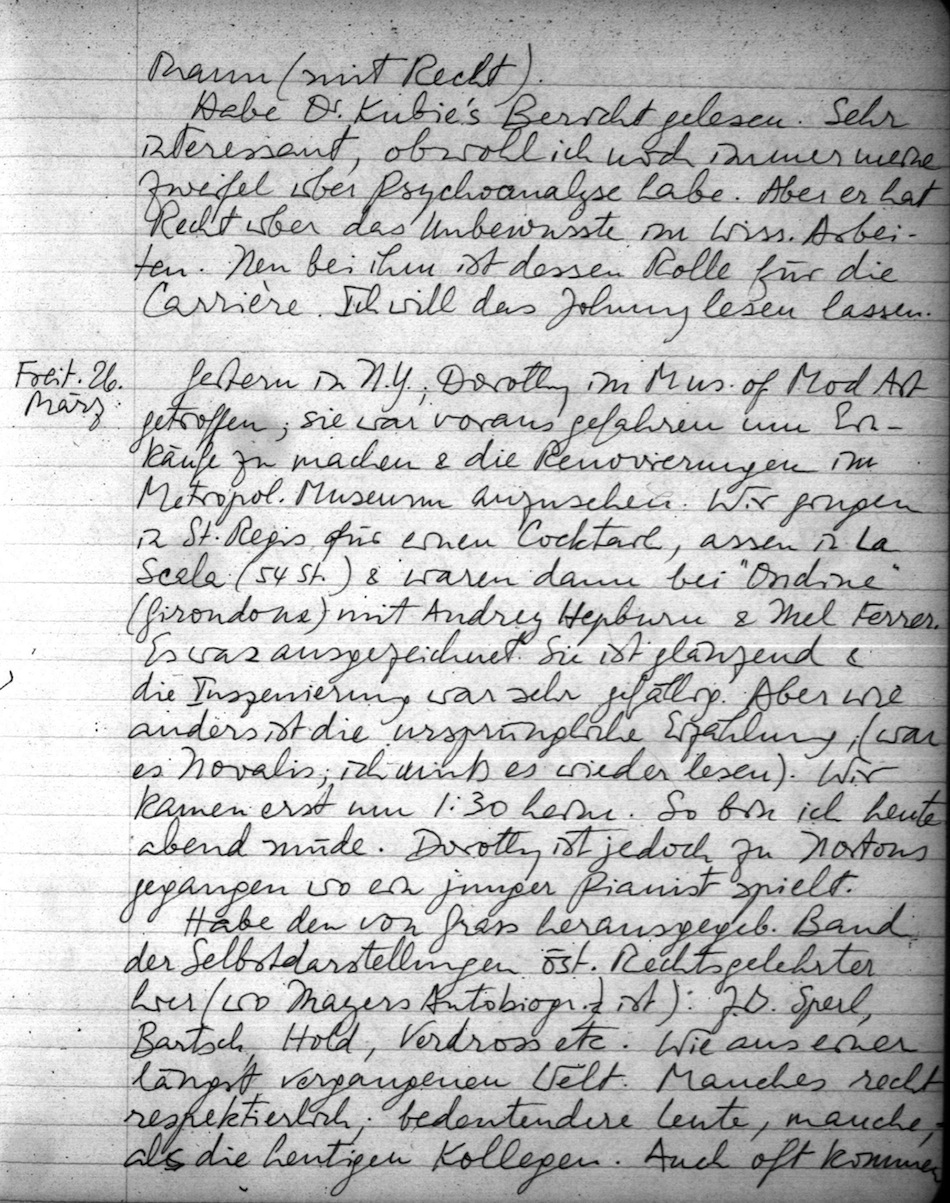 Mann (mit Recht).
Habe Dr. Kubie's Bericht gelesen. Sehr
interessant, obwohl ich noch immer meine
Zweifel über Psychoanalyse habe. Aber er hat
Recht über das Unbewusste im Wiss. Arbei-
ten. Neu bei ihm ist dessen Rolle für die
Carrière. Ich will das Johnny lesen lassen.
Freit. 26.
März
Gestern in N.Y.; Dorothy im Mus. of Mod Art
getroffen; sie war voraus gefahren um Ein-
käufe zu machen & die Renovierungen im
Metropol. Museum anzusehen. Wir gingen
in St. Regis für einen Cocktail, assen in La
Scala (54 St.) & waren dann bei "Ondine"
(Girondoux) mit Audrey Hepburn & Mel Ferrer.
Es war ausgezeichnet. Sie ist glänzend &
die Inszenierung war sehr gefällig. Aber wie
anders ist die ursprüngliche Erzählung; (war
es Novalis; ich muß es wieder lesen). Wir
kamen erst um 1:30 heim. So bin ich heute
abend müde. Dorothy ist jedoch zu Nortons
gegangen wo ein junger Pianist spielt.
Habe den von Grass herausgegeb. Band
der Selbstdarstellungen öst. Rechtsgelehrter
hier (wo Mayers Autobiogr. ist): z.B. Sperl,
Bartsch, Hold, Verdross etc. Wie aus einer
längst vergangenen Welt. Manches recht
respektierlich; bedeutendere Leute, manche,
als die heutigen Kollegen. Auch oft kommen